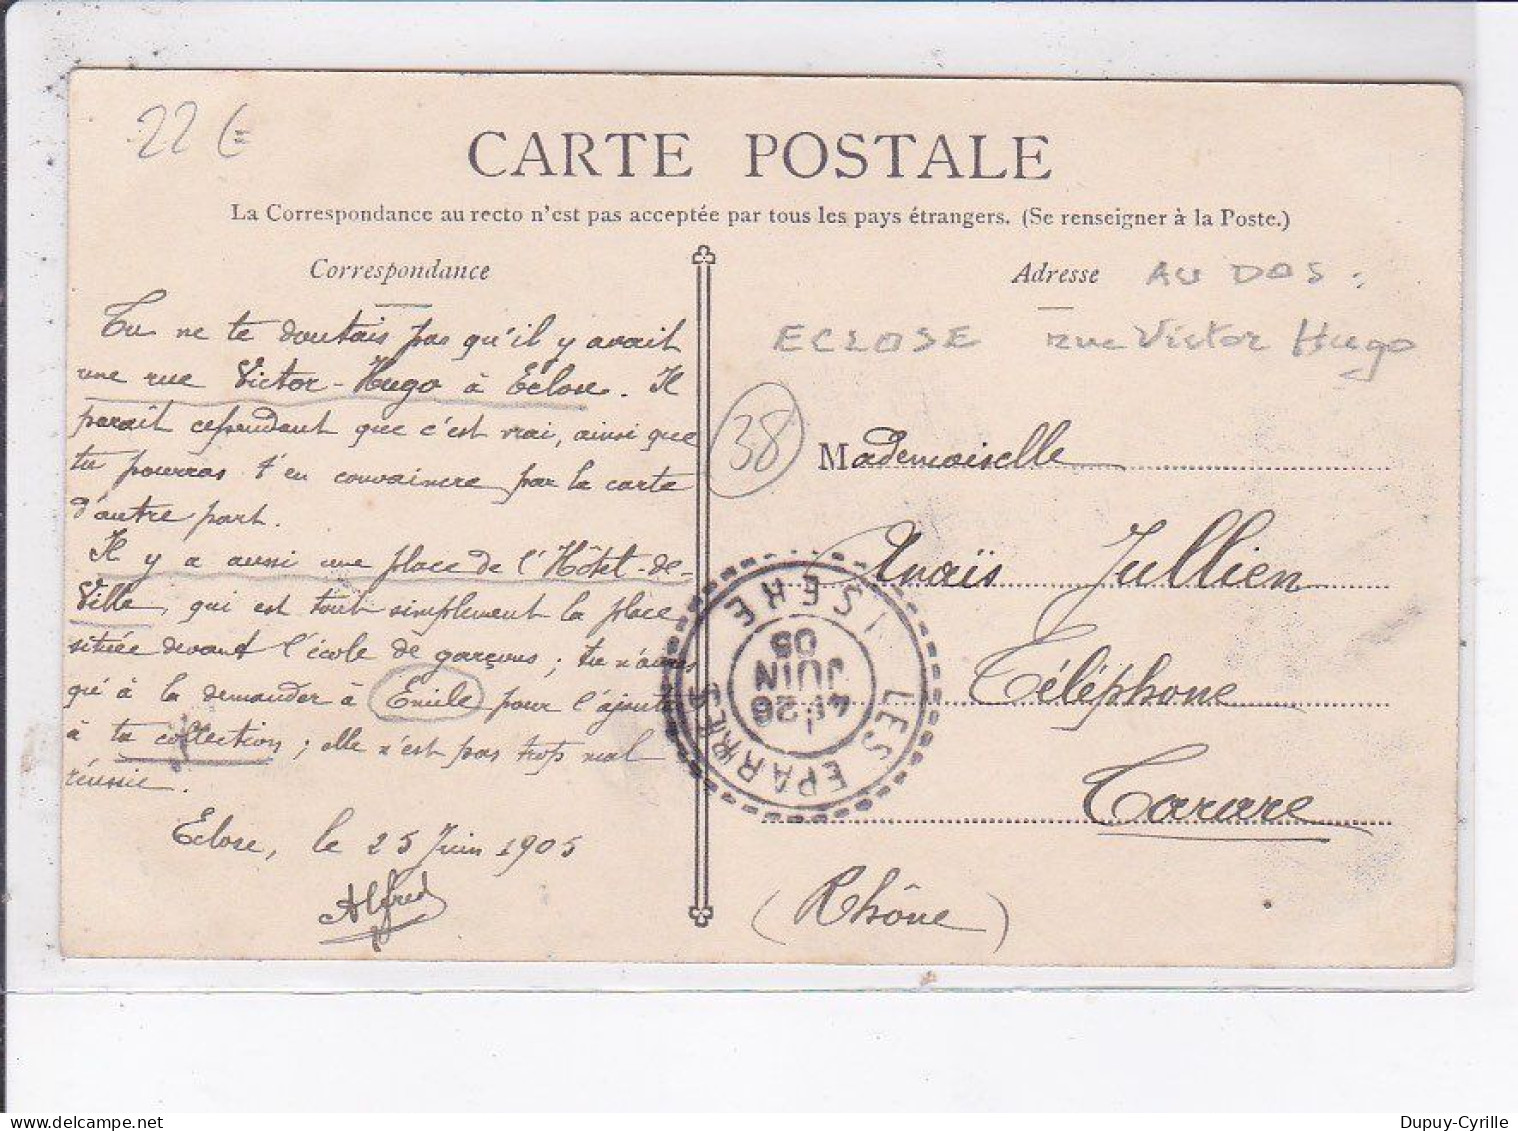 22 €
CARTE POSTALE
La Correspondance au recto n'est pas acceptée par tous les pays étrangers. (Se renseigner à la Poste.)
Correspondance
Tu ne te doutais pas qu'il y avait
une rue Victor-Hugo à Eclose. Il
parait cependant que c'est vrai, ainsi que
tu pourras t'en convaincre par la carte
d'autre part.
Il y a aussi une place de l'Hôtel-de-
Ville, qui est tout simplement la place
située devant l'école de garçons; tu n'auras
qu'à la demander à Emile pour l'ajouter
à ta collection; elle n'est pas trop mal
réussie.
Eclose, le 25 Juin 1905
Alfred
Adresse AU DOS:
ECLOSE rue Victor Hugo
38
Mademoiselle
Anaïs Jullien
Téléphone
Tarare
(Rhône)
LES EPARRES ISERE
4E 26
JUIN
05
Dupuy-Cyrille